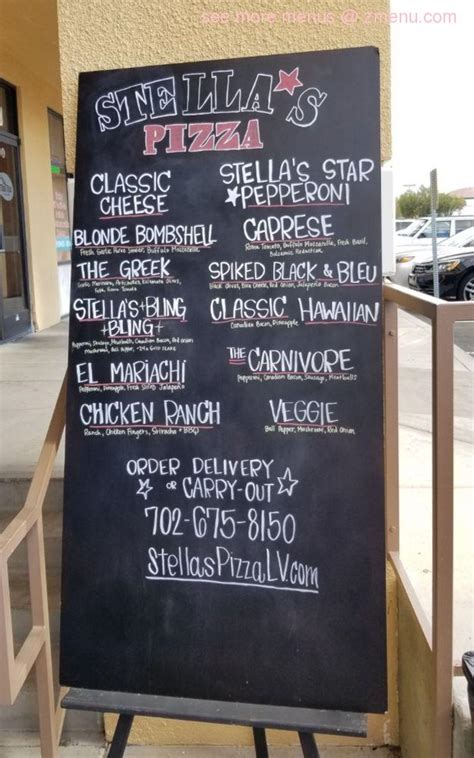 see more menus @ zmenu.com
STELLA'S
PIZZA
CLASSIC
CHEESE
BLONDE BOMBSHELL
Fresh Garlic, Buffalo Mozzarella
THE GREEK
Garlic Marinara, Artichokes, Kalamata Olives,
Feta, Roma Tomato
STELLA'S+BLING+
+BLING+
Pepperoni, Sausage, Meatball, Canadian Bacon, Red Onion
Mushroom, Bell Pepper, +24k GOLD FLAKE
EL MARIACHI
Pepperoni, Pineapple, Fresh Sliced Jalapeño
CHICKEN RANCH
Ranch, Chicken Fingers, Sriracha + BBQ
STELLA'S STAR
PEPPERONI
CAPRESE
Roma Tomato, Buffalo Mozzarella, Fresh Basil,
Balsamic Reduction
SPIKED BLACK & BLEU
Black Olives, Bleu Cheese, Red Onion, Jalapeño Bacon
CLASSIC HAWAIIAN
Canadian Bacon, Pineapple
THE CARNIVORE
Pepperoni, Canadian Bacon, Sausage, Meatballs
VEGGIE
Bell Pepper, Mushroom, Red Onion
ORDER DELIVERY
OR CARRY-OUT
702-675-8150
StellasPizzaLV.com